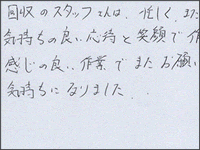 回収のスタッフさんは、忙しく、また
気持ちの良い応待と笑顔で作
感じの良い作業でまたお願い
気持ちになりました．